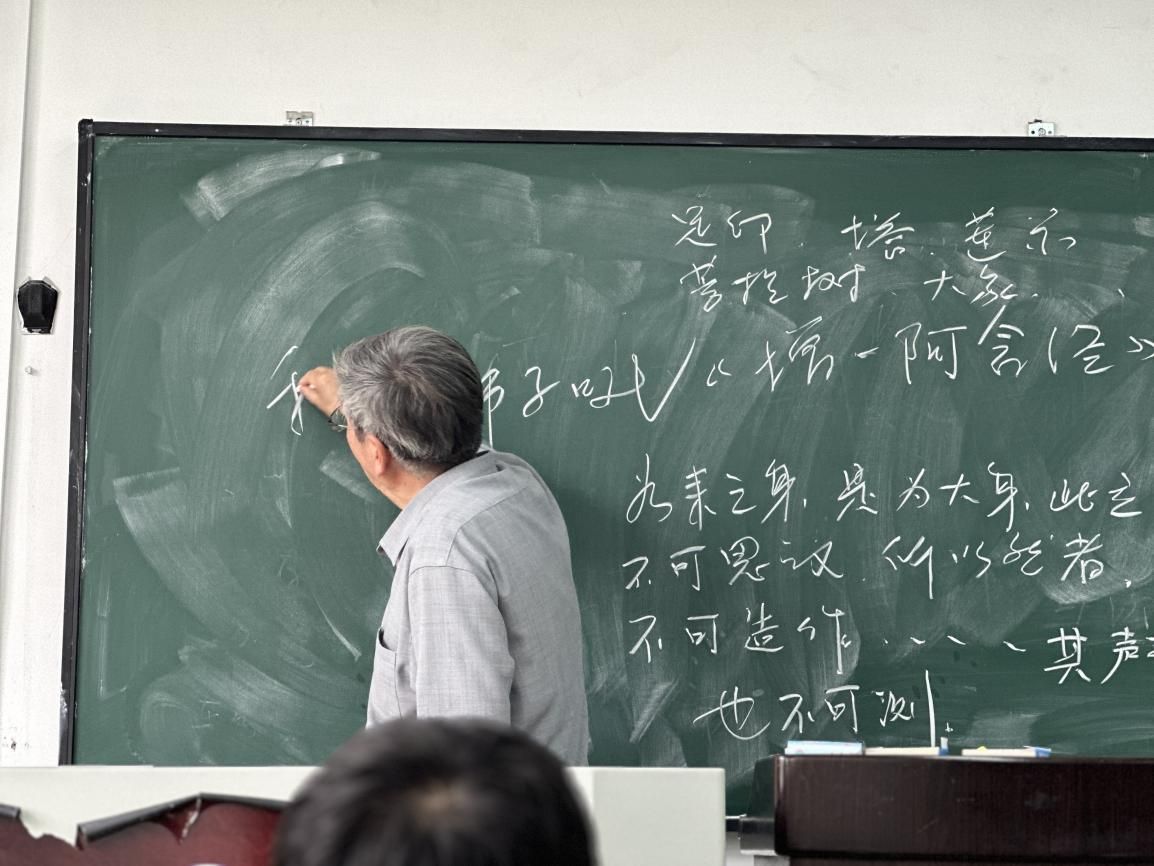 足印、塔、莲
菩提树、大象、、
子吼《增一阿含经》
如来之身，是为大身，此
不可思议．所以然者，
不可造作．、、、其声
也不可测